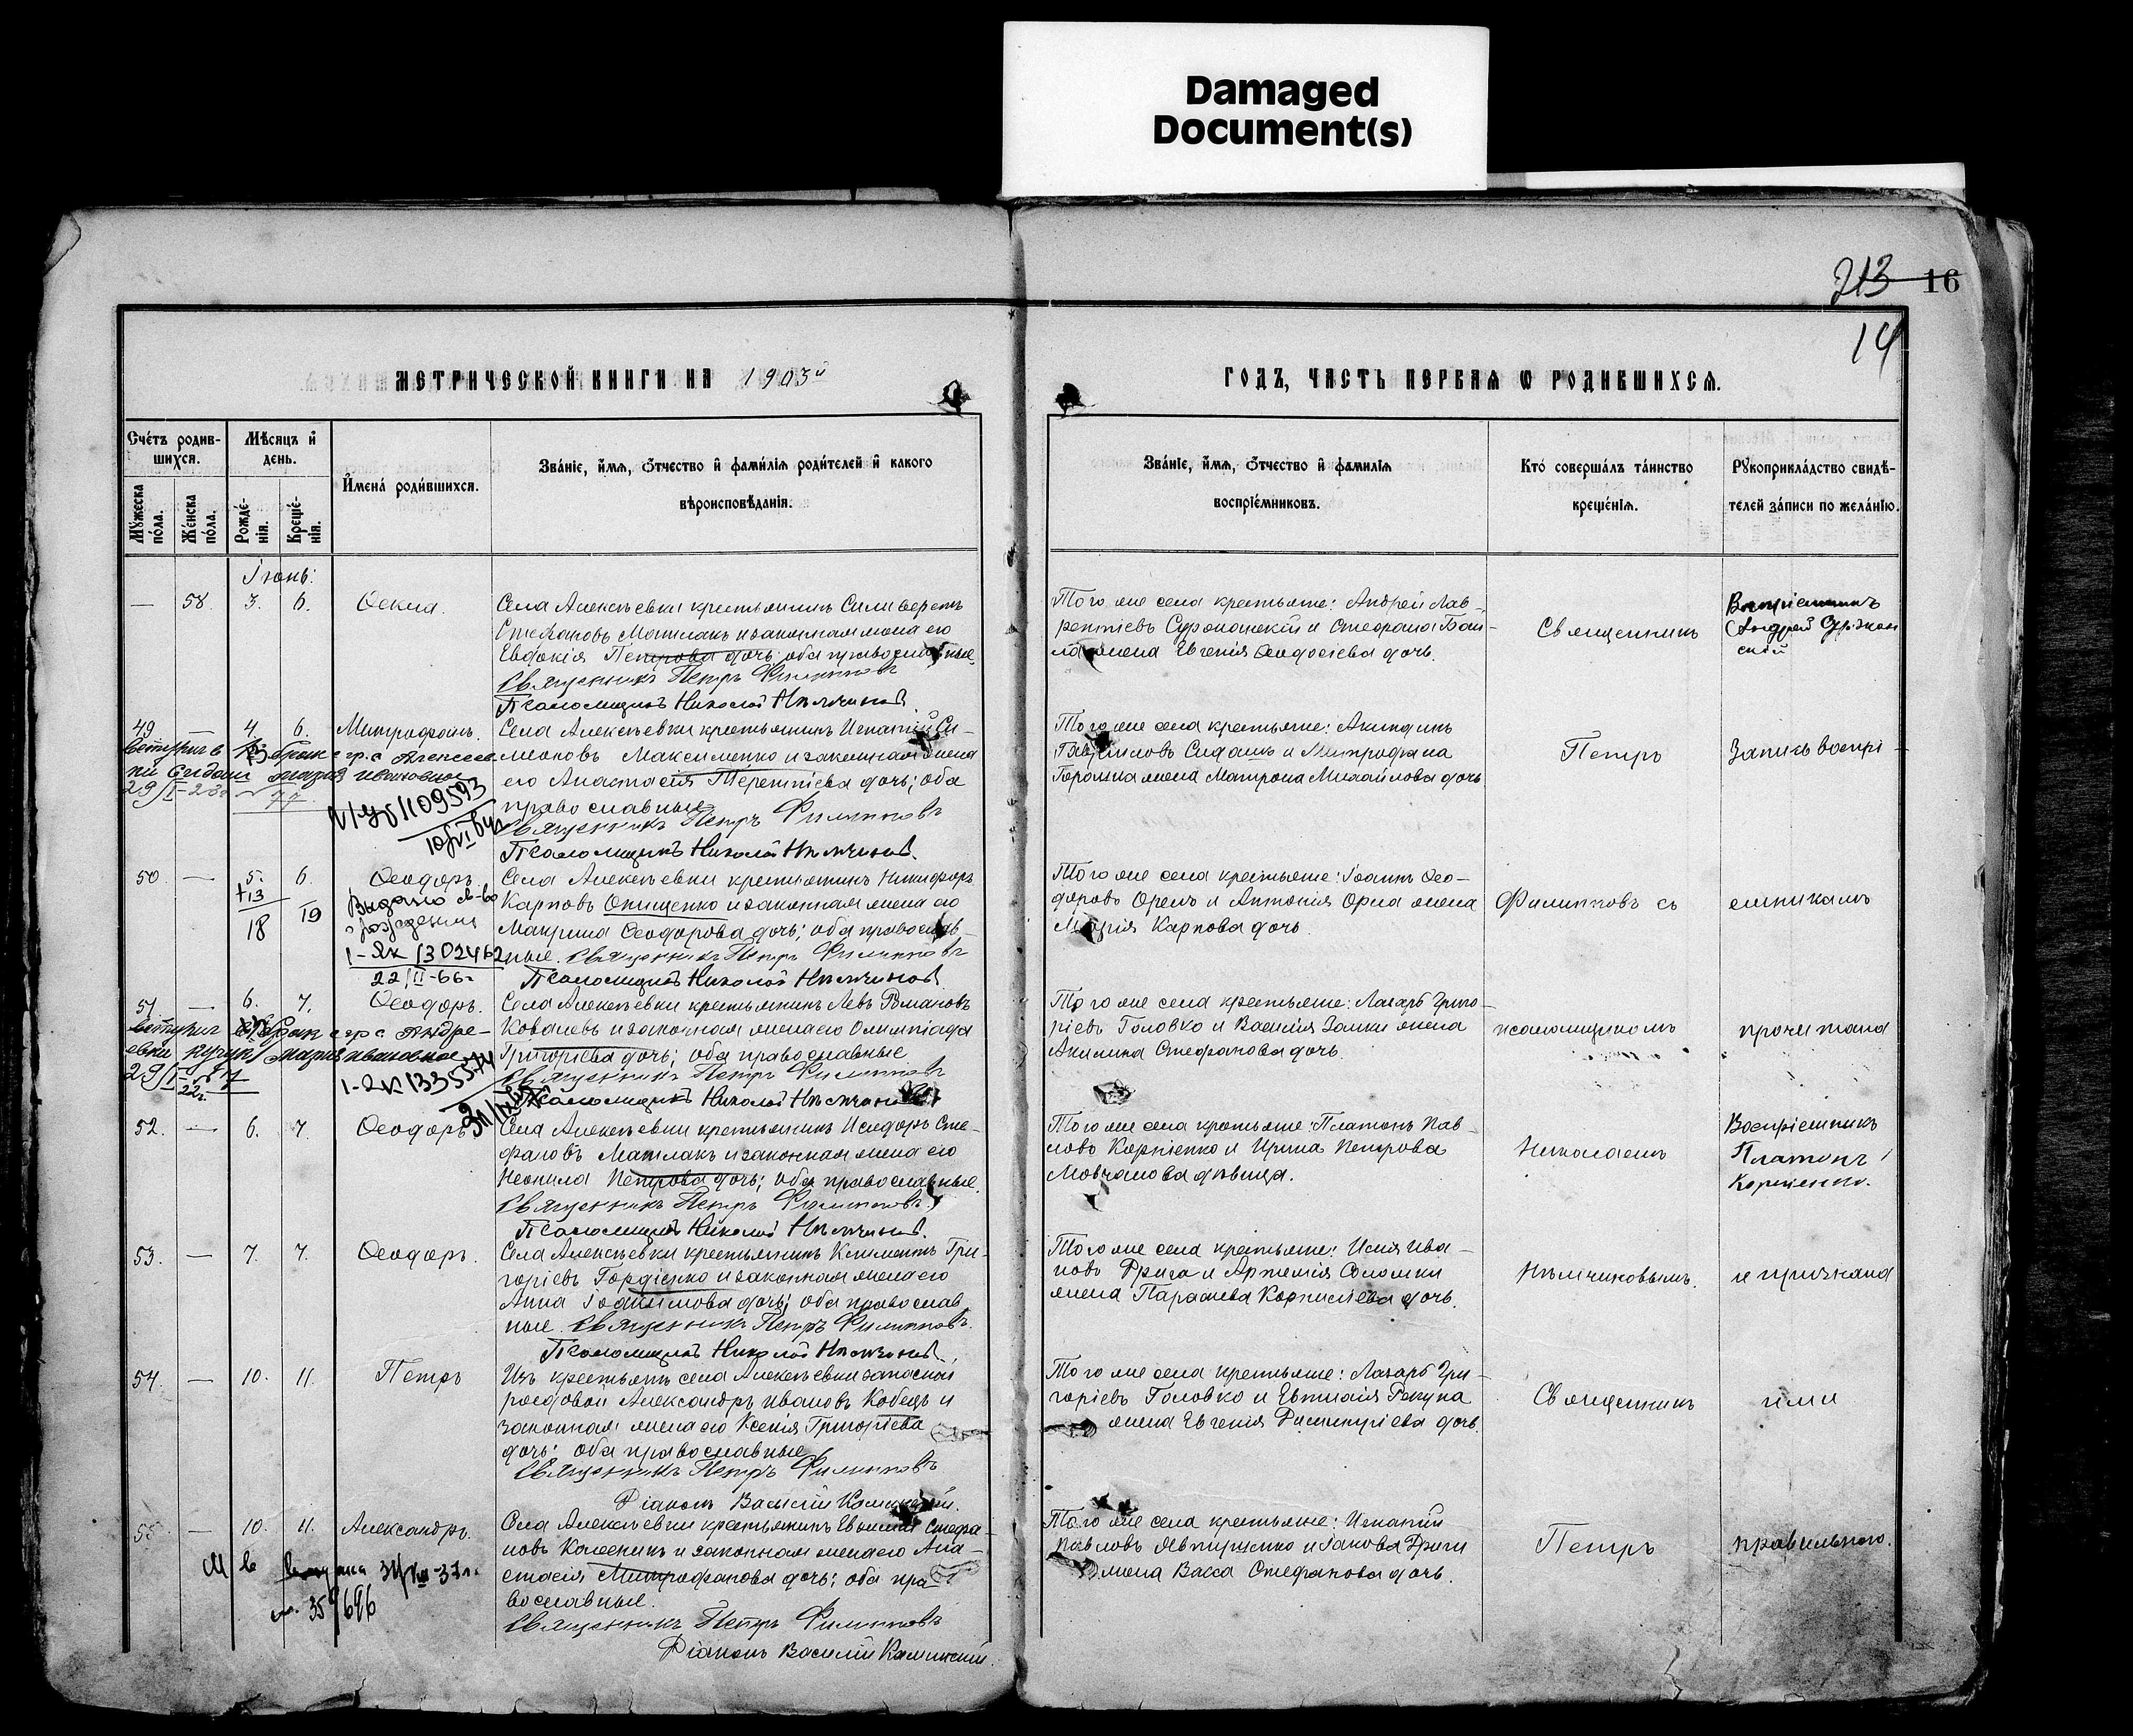 Damaged
Document(s)
213 16
14
МЕТРИЧЕСКОЙ КНИГИ НА 1903й
ГОДЪ, ЧАСТЬ ПЕРВАѦ Ѡ РОДИВШИХСѦ.
Счéтъ родив-
шихся.
Мѣсяцъ и
день.
Имена родившихся.
Званіе, имя, отчество и фамилія родителей и какого
вѣроисповѣданія.
Мужеска пола.
Женска пола.
Рожде-
нія.
Креще-
нія.
Званіе, имя, отчество и фамилія
воспріемниковъ.
Кто совершалъ таинство
крещенія.
Рукоприкладство свидѣ-
телей записи по желанію.
Іюнь:
— 58. 3. 6. Ѳекла.
Села Алексѣевки крестьянинъ Сильверстъ
Стефановъ Матлакъ и законная жена его
Евдокія Петрова дочь; оба православные.
Священникъ Петръ Филипповъ
Псаломщикъ Николай
Того же села крестьяне: Андрей Лав-
рентіевъ и Стефана
жена Евгенія Ѳеодосіева дочь.
Священникъ
Воспріемникъ
Андрей
49 — 4. 6. Митрофанъ.
Села Алексѣевки крестьянинъ Игнатій Си-
меоновъ Максименко и законная жена
его Анастасія Терентіева дочь; оба
православные
Священникъ Петръ Филипповъ
Псаломщикъ Николай
вступил в брак с гр. с Алексеев
ки Сидаш Мария Ивановной
29/I-23г
77
1109593
Того же села крестьяне: Акиндинъ
Сидашъ и Митрофана
жена Матрона Михайлова дочь
Петръ
Запись воспрі-
50 — 5. 6. Ѳеодоръ.
+13
18 19
Выдано св-во
о рождении
1-ЯК 1302462
22/II-66г
Села Алексѣевки крестьянинъ Никифоръ
Карповъ Онищенко и законная жена его
Макрина Ѳеодорова дочь; оба православ-
ные. Священникъ Петръ Филипповъ
Псаломщикъ Николай
Того же села крестьяне: Іоаннъ Ѳео-
доровъ Орелъ и Антонія Орла жена
Марія Карпова дочь
Филипповъ съ
емникамъ
51 — 6. 7. Ѳеодоръ.
Села Алексѣевки крестьянинъ Левъ Романовъ
Ковалевъ и законная жена его Олимпіада
Григоріева дочь; оба православные
Священникъ Петръ Филипповъ
Псаломщикъ Николай
вступил в брак с гр. с Андре-
евки Мария Ивановной
29/I-
22г.
1-ЯК 1335574
Того же села крестьяне: Лазарь Григо-
ріевъ Головко и Василія Заики жена
Акилина Стефанова дочь.
псаломщикомъ
прочитана
52. — 6. 7. Ѳеодоръ
Села Алексѣевки крестьянинъ Исидоръ Сте-
фановъ Матлакъ и законная жена его
Неонила Петрова дочь; оба православные.
Священникъ Петръ Филипповъ.
Псаломщикъ Николай
Того же села крестьяне: Платонъ Пав-
ловъ Корніенко и Ирина Петрова
Мовчанова дѣвица.
Николаемъ
Воспріемникъ
Платонъ
Корніенко.
53. — 7. 7. Ѳеодоръ.
Села Алексѣевки крестьянинъ Климентъ Гри-
горіевъ Гордіенко и законная жена его
Анна Іоакимова дочь; оба православ
ные. Священникъ Петръ Филипповъ.
Псаломщикъ Николай
Того же села крестьяне: Исаія Ива-
новъ Дрига и Артемія Соломки
жена Параскева Корниліева дочь.
и признана
54. — 10. 11. Петръ
Изъ крестьянъ села Алексѣевки запасной
рядовой Александръ Ивановъ Кобецъ и
законная жена его Ксенія Григоріева
дочь; оба православные
Священникъ Петръ Филипповъ
Діаконъ Василій Калинскій.
Того же села крестьяне: Лазарь Гри-
горіевъ Головко и Евтихія
жена Евгенія Димитріева дочь.
Священникъ
ими
55. — 10. 11. Александръ.
Села Алексѣевки крестьянинъ Стефа-
новъ Колесникъ и законная жена его Ана-
стасія Митрофанова дочь; оба пра-
вославные.
Священникъ Петръ Филипповъ
Діаконъ Василій Калинскій.
Того же села крестьяне: Игнатій
Павловъ и Іакова Дриги
жена Васса Стефанова дочь.
Петръ
правильною.